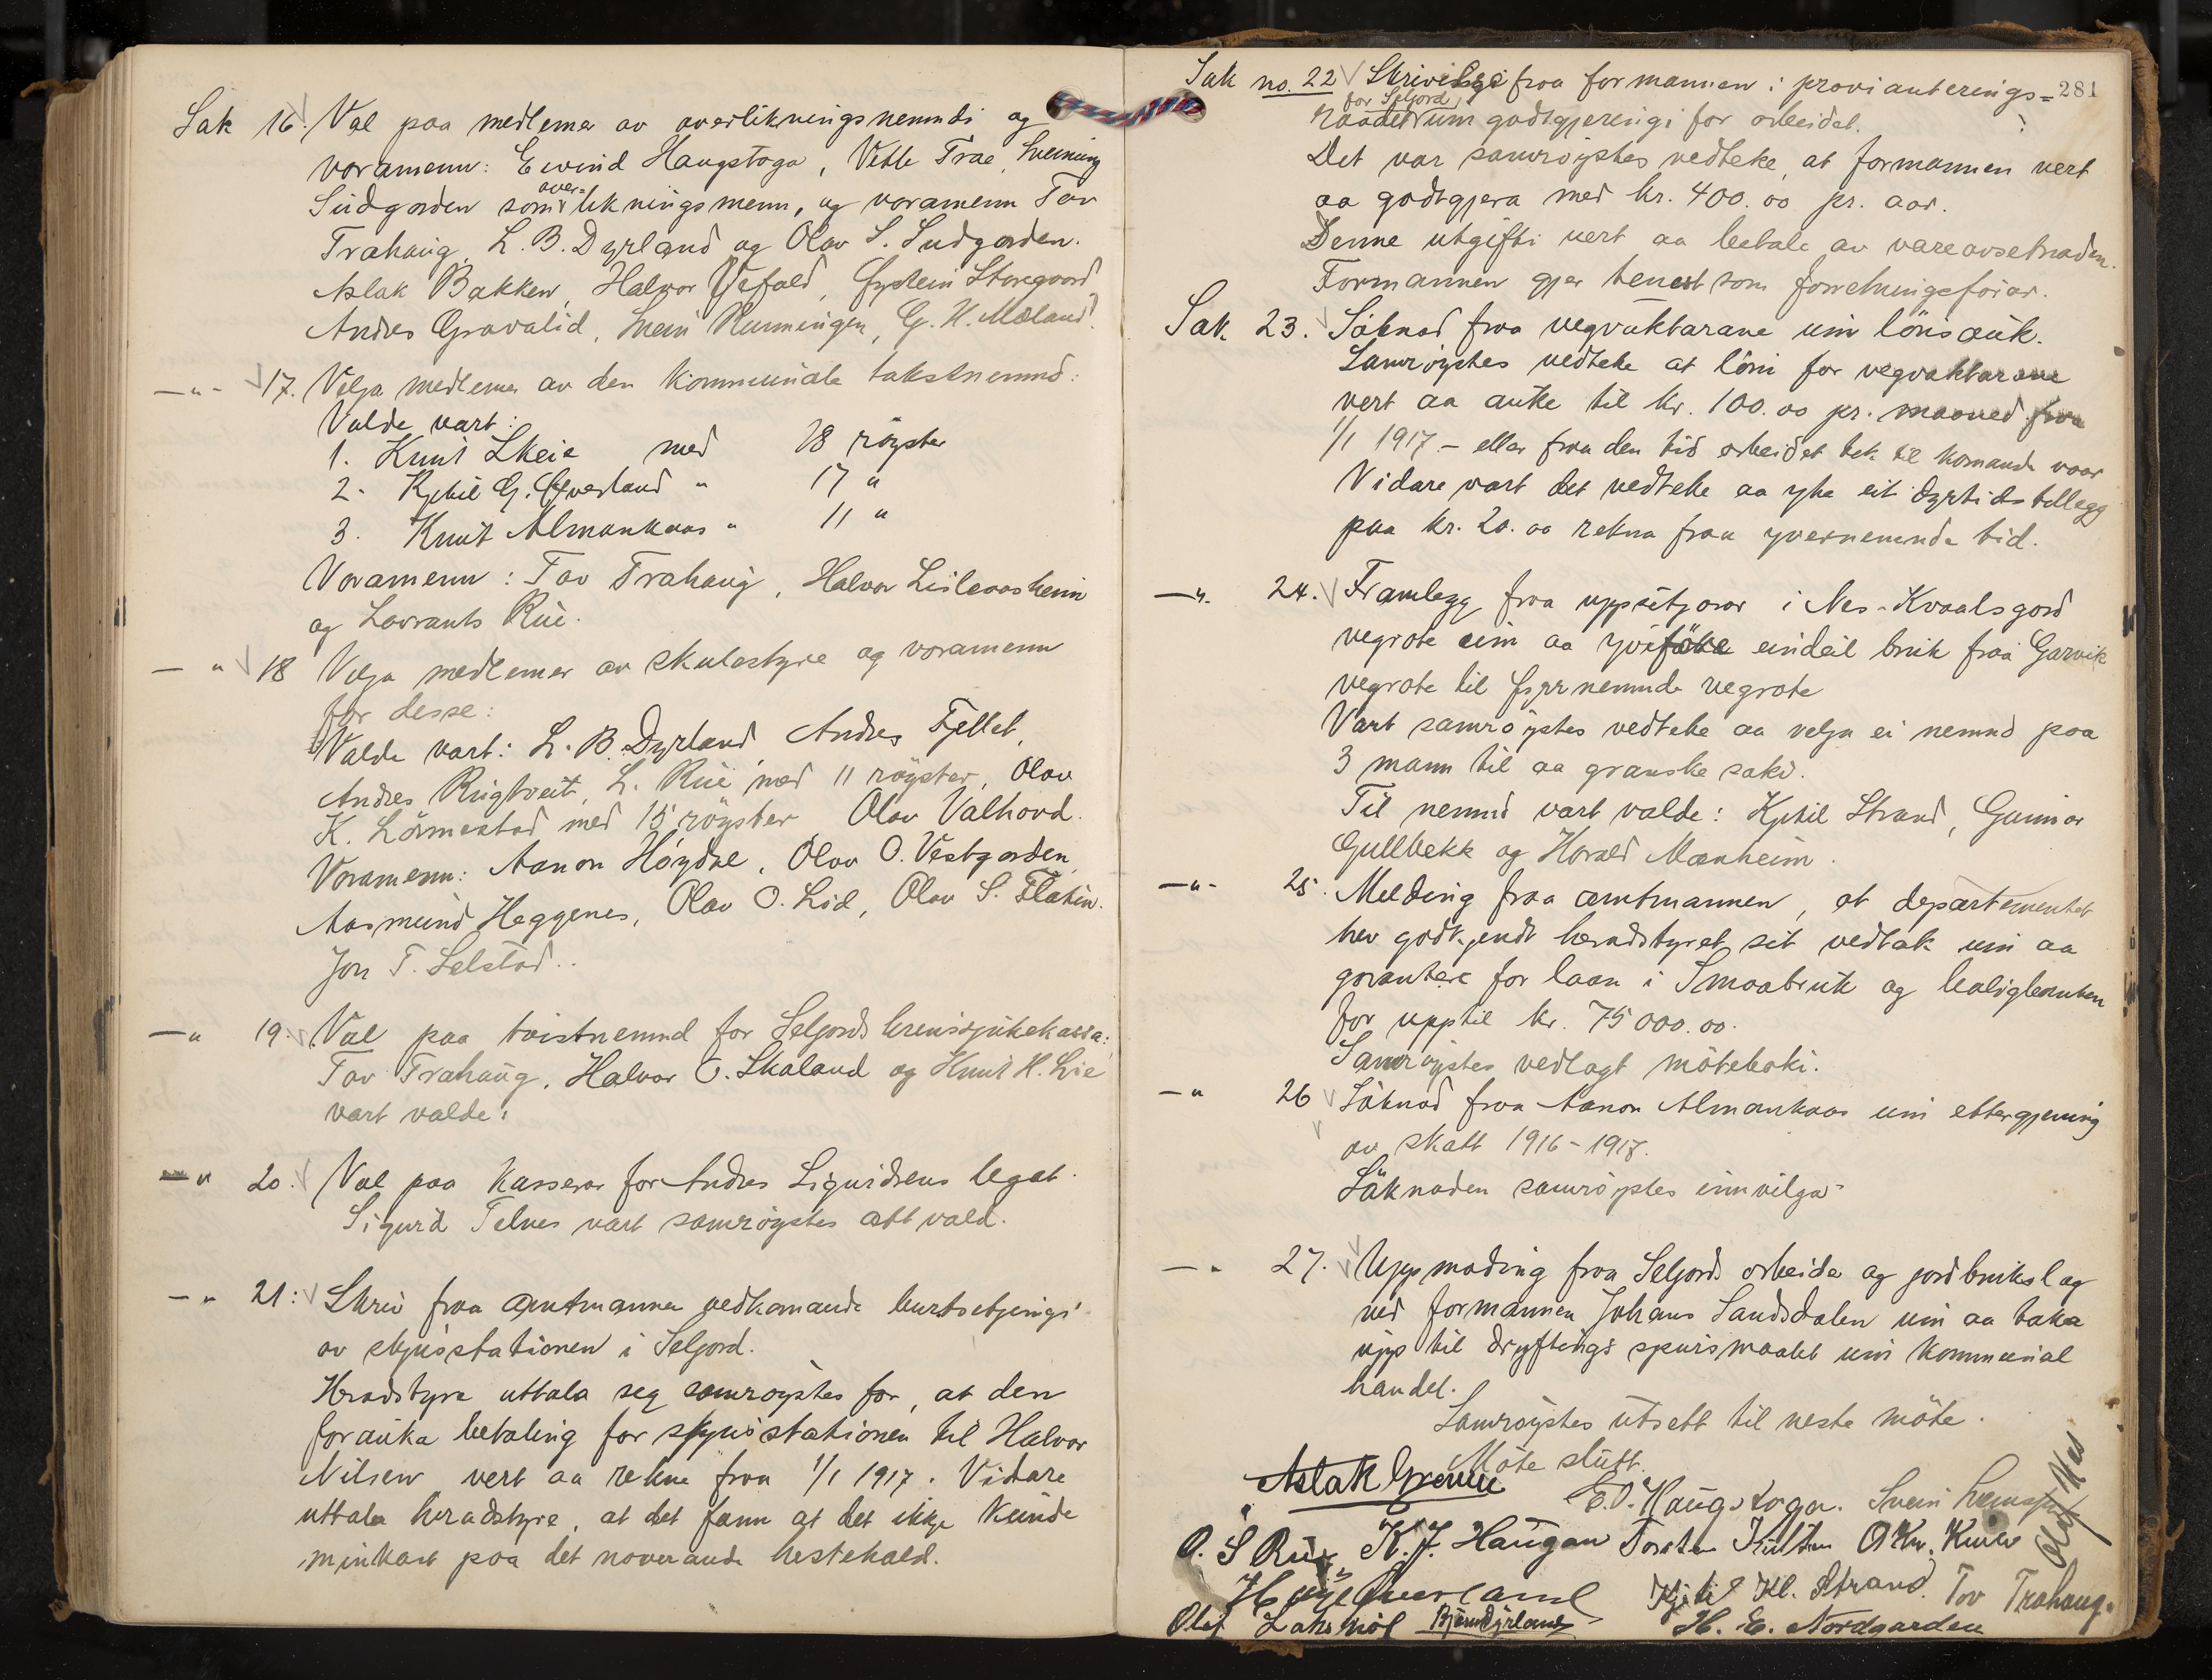 Sak 16. Val paa medlemer av overlikningsnemndi og
voramenn: Eivind Haugstoga, Vetle Trae, Sveinung
Sudgarden som over= likningsmenn, og voramenn Tov
Trahaug, L. B. Dyrland og Olav S. Sudgarden.
Aslak Bakken, Halvor Ufald, Øystein Storegaard
Andres Gravalid, Svein Nummingen, G. H. Mæland.
—"- 17. Velja medlemer av den kommunale takstnemnd:
Valde vart:
1. Knut Skeie med 18 röyster
2. Kjetil G. Överland " 17 "
3. Knut Almankaas " 11 "
Voramenn: Tov Trahaug, Halvor Lisleaasheim
og Lavrants Rui.
— " 18 Velja medlemer av skulestyre og voramenn
for desse:
Valde vart: L. B. Dyrland Andres Fjellet,
Andres Rugtveit, L. Rui med 11 röyster, Olav
K. Lönnestad med 15 röyster Olav Valhovd.
Voramenn: Aanon Höydal, Olav O. Vestgarden,
Aasmund Heggenes, Olav O. Lid, Olav S. Flatin.
Jon T. Selstad..
—" 19. Val paa tvistnemnd for Seljords krinssjukekassa:
Tov Trahaug, Halvor O. Skaland og Knut H. Lie
vart valde.
—" 20. Val paa kasserar for Andres Sigurdsens legat.
Sigurd Telnes vart samröystes att vald.
—" 21: Skriv fraa amtmannen vedkomande burtsetjingi
av skjusstationen i Seljord.
Heradstyre uttala seg samröystes for, at den
forauka betaling for skjusstationen til Halvor
Nilsen vert aa rekna fraa 1/1 1917. Vidare
uttala heradstyre, at det fann at det ikkje kunde
minkast paa det noverande hestehald.
281
Sak no. 22 Skrivelse fraa formannen i provianterings=
raadet for Seljord, um godtgjeringi for arbeidet.
Det var samröystes vedteke, at formannen vert
aa godtgjera med kr. 400.00 pr. aar.
Denne utgifti vert aa betala av vareavsetnaden.
Formannen gjer tenest som forretningsförar.
Sak 23. Söknad fraa vegvaktarane um lönsauk.
Samröystes vedteke at löni for vegvaktarane
vert aa auke til kr. 100.00 pr. maaned fraa
1/1 1917 – eller fraa den tid arbeidet tek til komande vaar
Vidare vart det vedteke aa yta eit dyrtidstillegg
paa kr. 20.00 rekna fraa yvernemnde tid.
—"- 24. Framlegg fraa uppsitjarar i Nes-Kvaalsgard
vegrote um aa yviföre eindeil bruk fraa Garvik
vegrote til fyrrnemnde vegrote
Vart samröystes vedteke aa velja ei nemnd paa
3 mann til aa granske saki.
Til nemnd vart valde: Kjetil Strand, Gunnar
Gullbekk og Harald Manheim.
—"- 25. Melding fraa amtmannen, at departementet
hev godkjendt heradstyret sit vedtak um aa
garantere for laan i Smaabruk og bolig banken
for upptil kr. 75 000.00.
Samröystes vedlagt möteboki.
—" 26 Söknad fraa Aanon Almankaas um ettergjeving
av skatt 1916-1917.
Söknaden samröystes innvilga
—" 27. Uppmoding fraa Seljords arbeidar og jordbrukslag
ved formannen Johans Sandsdalen um aa taka
upp til dryftings spursmaalet um kommunal
handel.
Samröystes utsett til neste möte.
Möte slutt.
Aslak Grenni E. O. Haugstoga. Svein
O. S Rui K. J. Haugan Torstein Kulten O Kn. Kivle
Olaf Nes
Kjetil Kl. Strand. Tov Trahaug.
Olaf Lakshöl Björn Dyrland H. E. Nordgarden